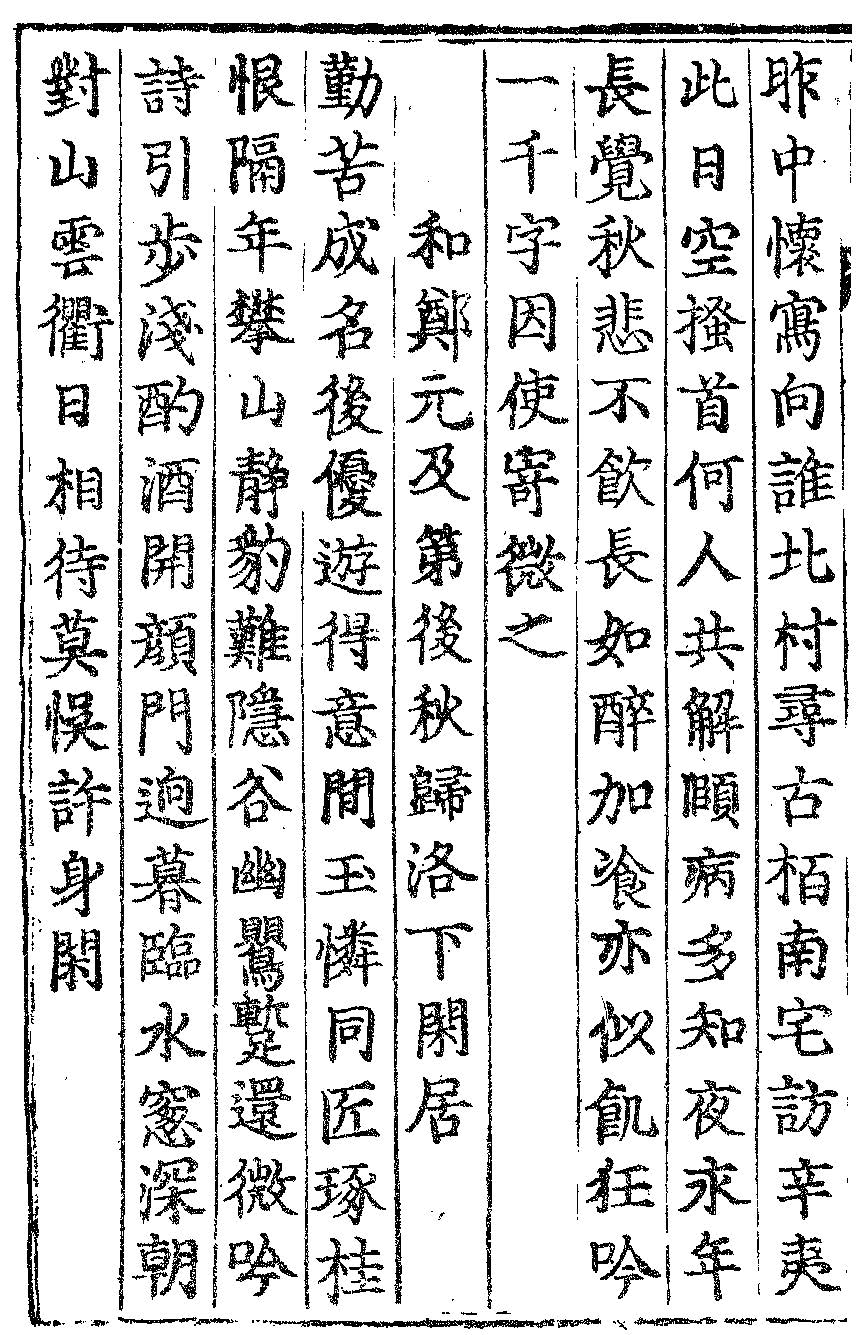 昨中懷寫向誰北村尋古栢南宅訪辛夷
此日空搔首何人共解頤病多知夜永年
長覺秋悲不飲長如醉加飡亦似飢狂吟
一千字因使寄微之
和鄭元及第後秋歸洛下閑居
勤苦成名後優遊得意間玉憐同匠琢桂
恨隔年攀山静豹難隱谷幽鸎蹔還微吟
詩引步淺酌酒開顔門迥暮臨水窓深朝
對山雲衢日相待莫悞許身閑